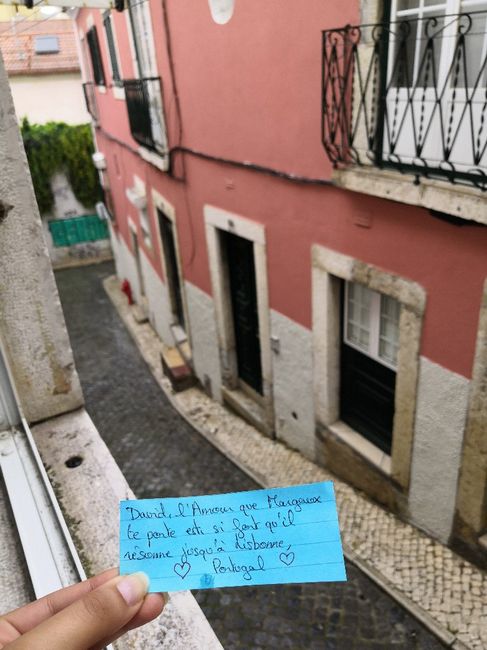 David, l'Amour que Margaux
te porte est si fort qu'il
résonne jusqu'à Lisbonne,
Portugal